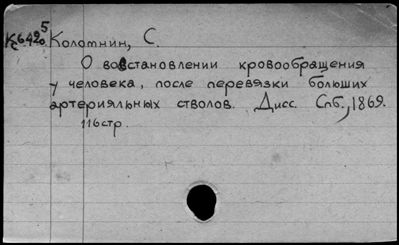 5
Кс 6420 Коломнин, С.
О возстановлении кровообращения
у человека, после перевязки больших
артерияльных стволов. Дисс. Спб., 1869.
116стр.